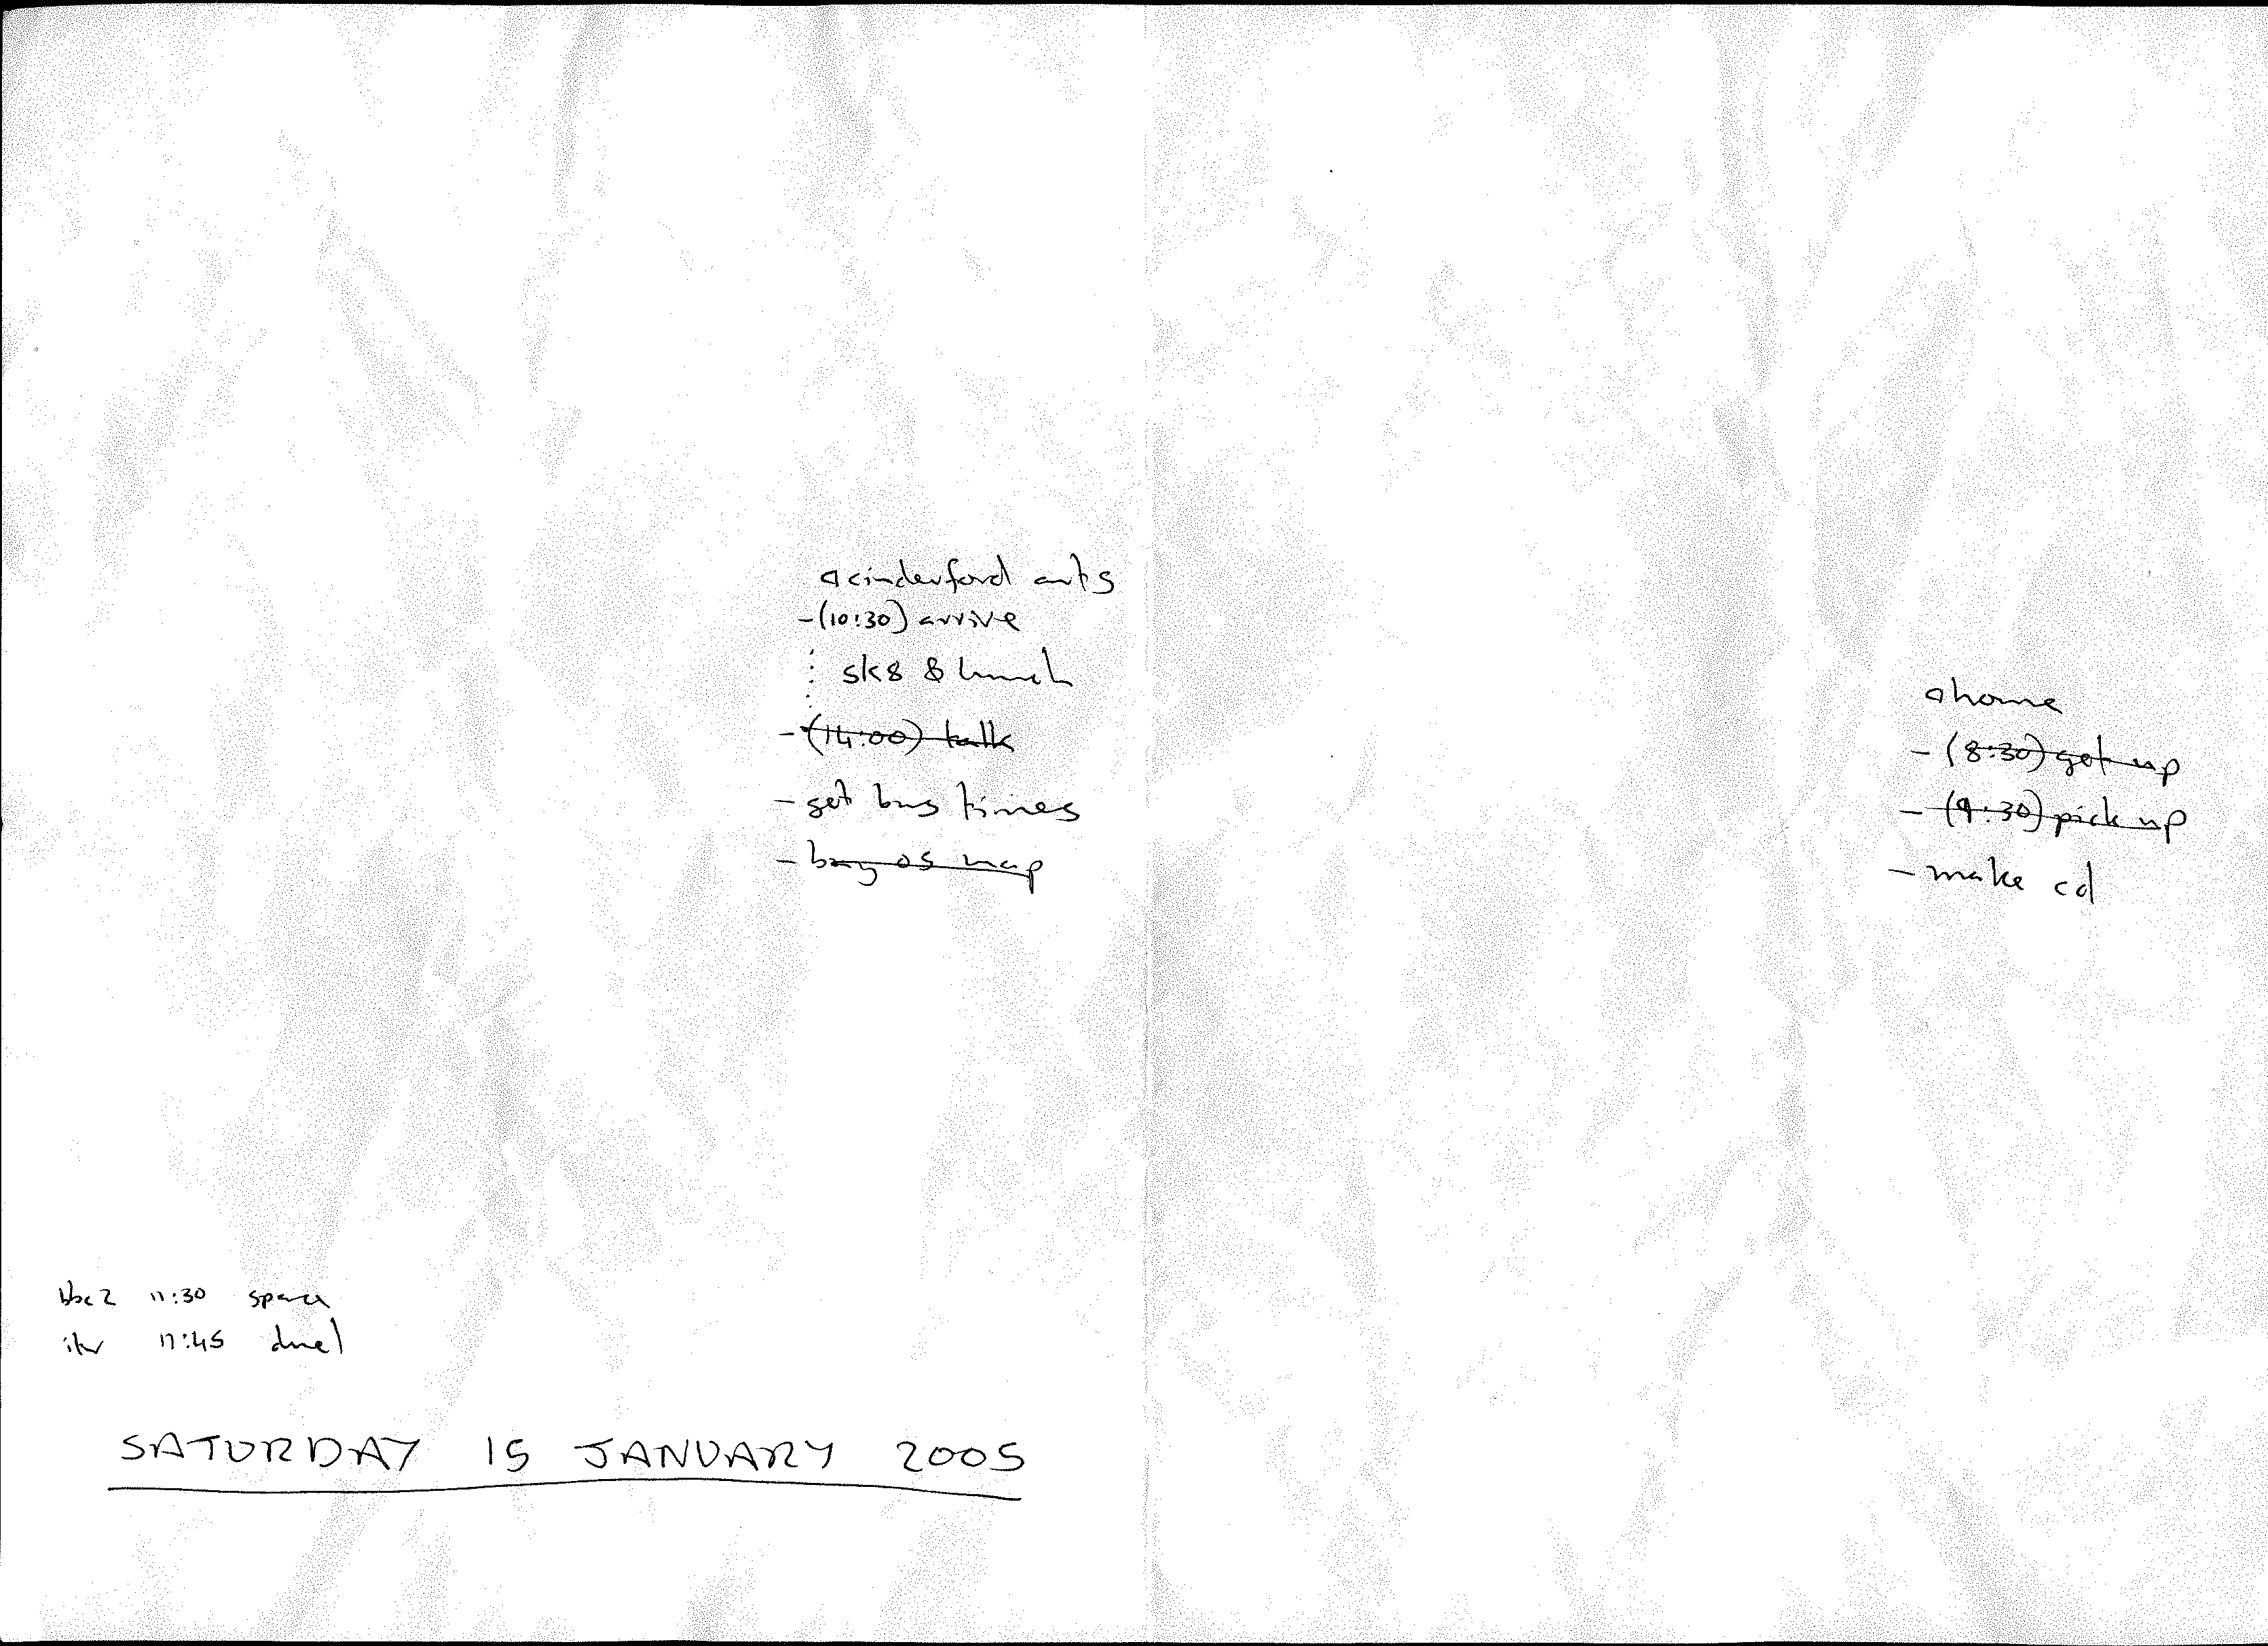 cinderford arts
-(10:30) arrive
sk8 & lunch
-(14:00) talk
- get bus times
- buy os map
home
- (8:30) get up
- (9:30) pick up
- make cd
bbc2 11:30 space
itv 11:45 duel
SATURDAY 15 JANUARY 2005